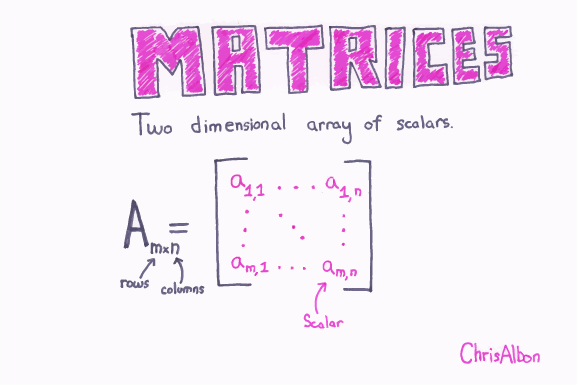 MATRICES
Two dimensional array of scalars.
A m×n = [ a1,1 . . . a1,n
. . .
. . .
. . .
am,1 . . . am,n ]
rows columns
Scalar
ChrisAlbon